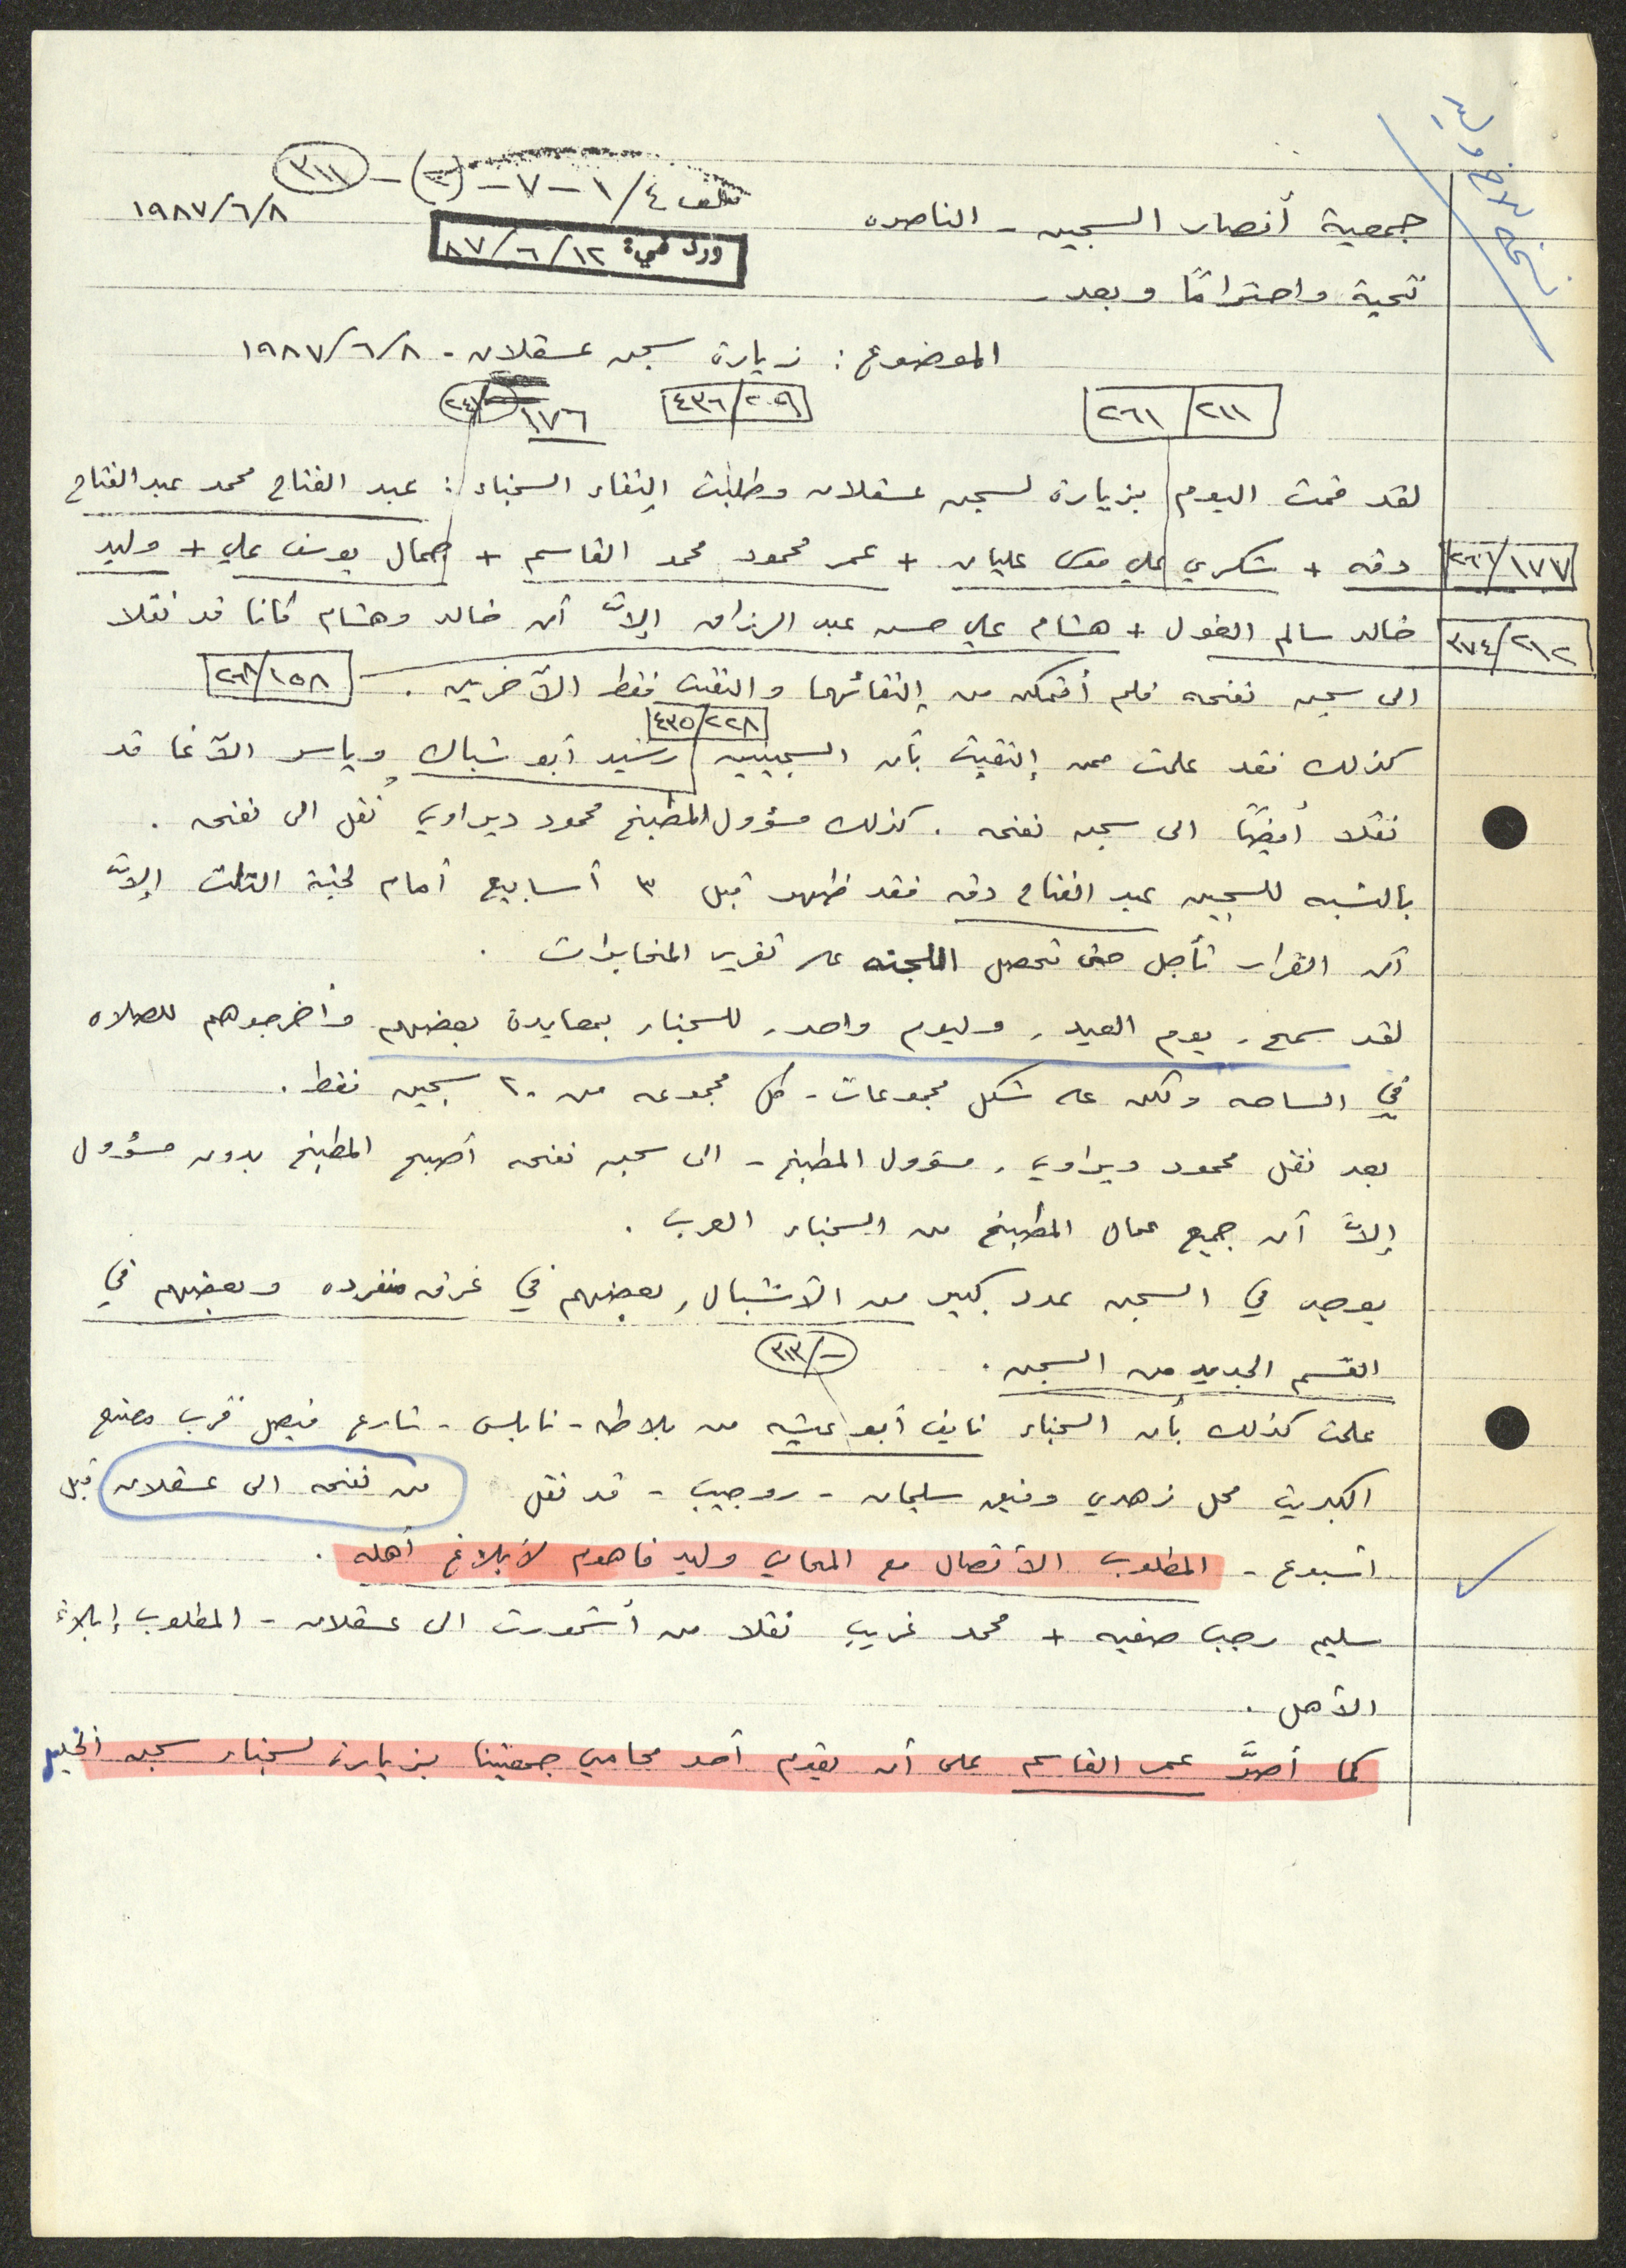 ملف ١/٤ - ٧ - (٢) - ٣١١
١٩٨٧/٦/٨
جمعية أنصار السجين - الناصره
ورد في: ٨٧/٦/١٢
تحية واحترامًا وبعد،
الموضوع: زيارة سجن عسقلان - ١٩٨٧/٦/٨
٢١١/٢٦١ ٢٠٩/٤٣٦ ١٧٦
لقد قمت اليوم بزيارة لسجن عسقلان وطلبت إلتقاء السجناء: عبد الفتاح محمد عبد الفتاح
١٧٧/٢٦٦ دقه + شكري علي موسى عليان + عمر محمود محمد القاسم + جمال يوسف علي + وليد
٢١٢/٣٧٤ خالد سالم الغول + هشام علي حسن عبد الرزاق إلاّ أن خالد وهشام كانا قد نقلا
الى سجن نفحه فلم أتمكن من إلتقائهما والتقيت فقط الآخرين. ١٥٨/٢٦٨
٢٢٨/٤٣٥
كذلك فقد علمت ممن إلتقيت بأن السجينين رشيد أبو شباك وياسر الآغا قد
نقلا أيضًا الى سجن نفحه. كذلك مسؤول المطبخ محمود ديراوي نُقل الى نفحه.
بالنسبه للسجين عبد الفتاح دقه فقد ظهر قبل ٣ أسابيع أمام لجنة الثلث إلاّ
أن القرار تأجل حتى تحصل اللجنه على تقرير المخابرات.
لقد سمح، يوم العيد، وليوم واحد، للسجناء بمعايدة بعضهم وأخرجوهم للصلاه
في الساحه ولكن على شكل مجموعات - كل مجموعه من ٢٠ سجين فقط.
بعد نقل محمود ديراوي، مسؤول المطبخ - الى سجن نفحه أصبح المطبخ بدون مسؤول
إلاّ أن جميع عمال المطبخ من السجناء العرب.
يوجد في السجن عدد كبير من الأشبال، بعضهم في غرف منفرده وبعضهم في
القسم الجديد من السجن.
-/٣١٣
علمت كذلك بأن السجناء نايف أبو عيشه من بلاطه - نابلس - شارع فيصل قرب مصنع
الكبريت محل زهدي وفيق سليمان - روجيب - قد نقل من نفحه الى عسقلان قبل
أسبوع - المطلوب الأتصال مع المحامي وليد فاهوم لأبلاغ أهله.
سليم رجب صفيه + محمد غريب نقلا من أشمورت الى عسقلان - المطلوب إبلاغ
الأهل.
كما أصرَّ عمر القاسم على أن يقوم أحد محامي جمعيتنا بزيارة لسجناء سجن الخليل